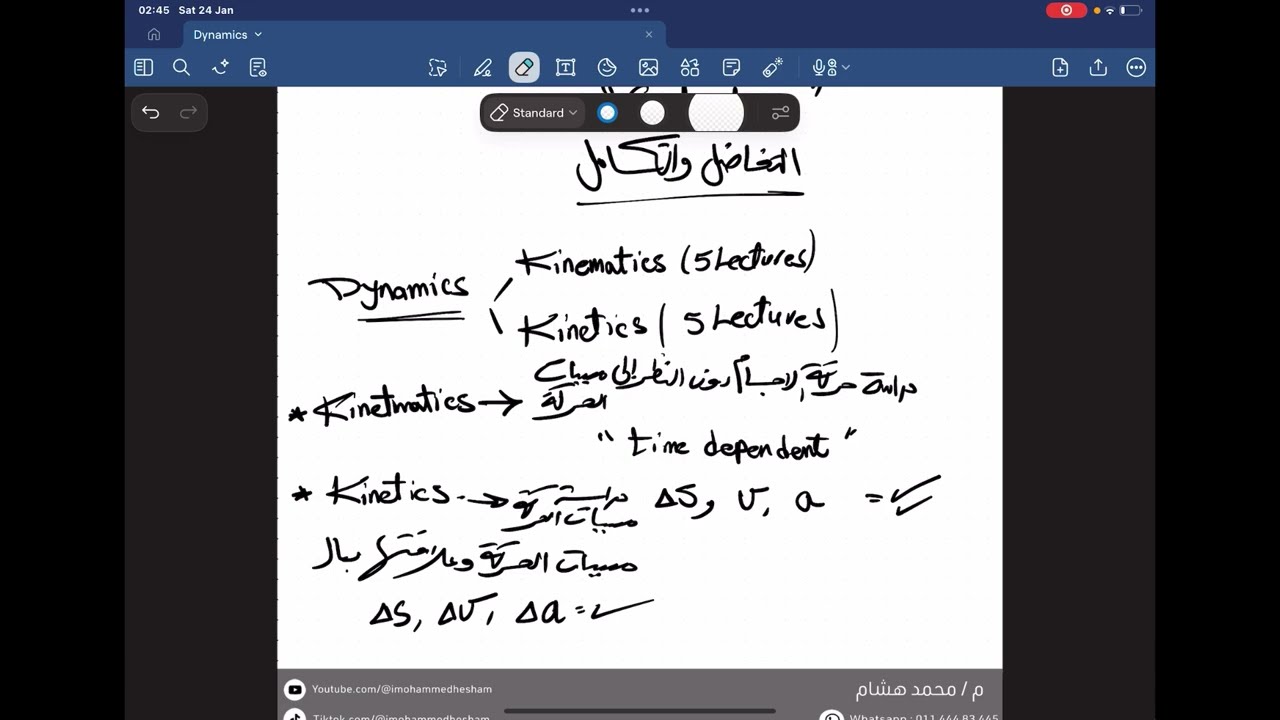 02:45 Sat 24 Jan
Dynamics
Standard
التفاضل والتكامل
Dynamics
Kinematics (5 Lectures)
Kinetics ( 5 Lectures)
* Kinetmatics → دراسة حركة الاجسام دون النظر إلى مسببات
الحركة
" time dependent "
* Kinetics → دراسة الحركة ΔS, v, a =✓
مسببات الحركة
مسببات الحركة وعلاقتها بال
ΔS, Δv, Δa =✓
Youtube.com/@imohammedhesham
م / محمد هشام
Tiktok.com/@imohammedhesham
Whatsapp : 011 444 83 445